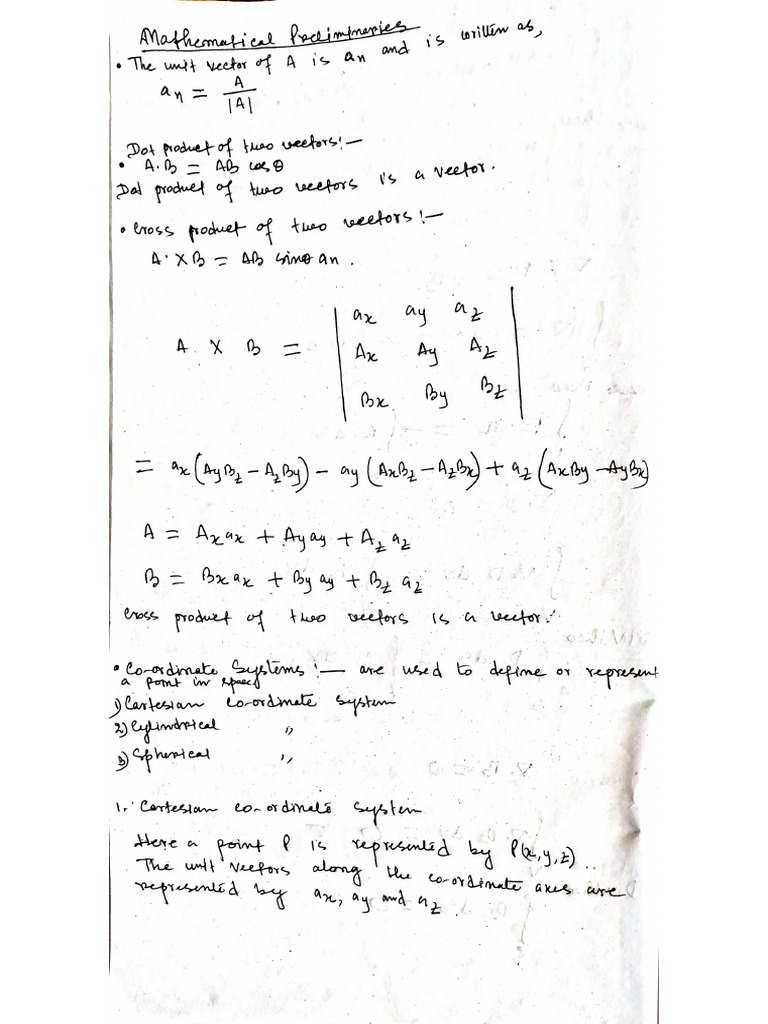 Mathematical Preliminaries
• The unit vector of A is an and is written as,
an = A / |A|
Dot product of two vectors:—
• A.B = AB cosθ
Dot product of two vectors is a vector.
• Cross product of two vectors:—
A·XB = AB sinθ an.
A X B = | ax ay az |
| Ax Ay Az |
| Bx By Bz |
= ax(AyBz – AzBy) – ay(AxBz – AzBx) + az(AxBy – AyBx)
A = Axax + Ayay + Az az
B = Bxax + By ay + Bz az
Cross product of two vectors is a vector.
• Co-ordinate Systems:— are used to define or represent
a point in space
1) Cartesian co-ordinate system
2) Cylindrical ,,
3) Spherical ,,
1. Cartesian co-ordinate system
Here a point P is represented by P(x,y,z)..
The unit vectors along the co-ordinate axes are
represented by ax, ay and az.